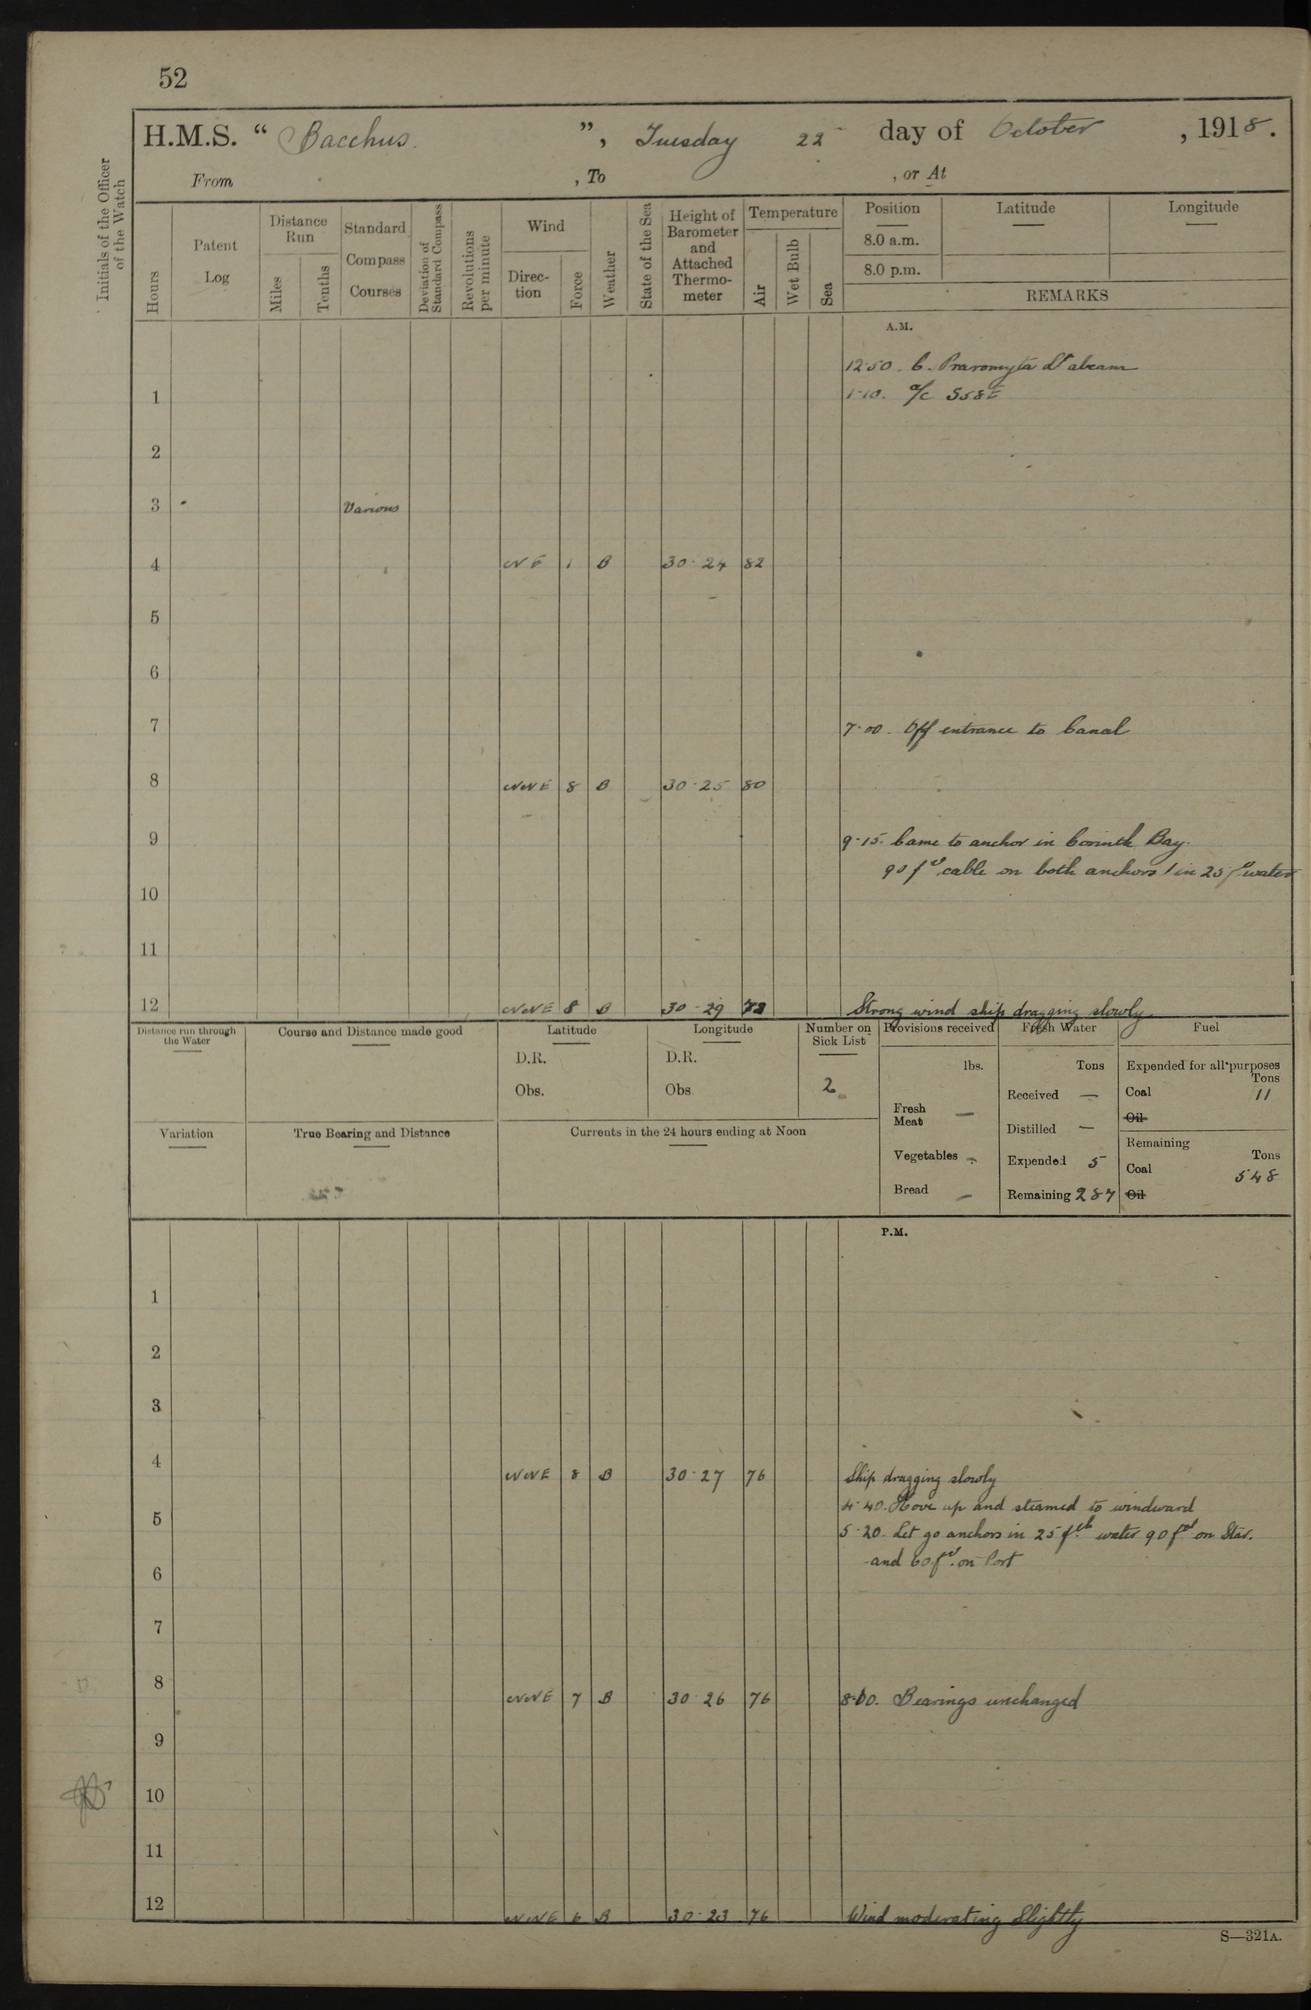 52
H.M.S. “ Bacchus ”, Tuesday 22 day of October , 1918.
From , To , or At
Initials of the Officer of the Watch
Hours
Patent Log
Distance Run
Miles
Tenths
Standard Compass Courses
Deviation of Standard Compass
Revolutions per minute
Wind
Direc-tion
Force
Weather
State of the Sea
Height of Barometer and Attached Thermo-meter
Temperature
Air
Wet Bulb
Sea
Position Latitude Longitude
8.0 a.m.
8.0 p.m.
REMARKS
A.M.
12·50. C. Praromyta Lt abeam
1 1·10. a/c S58E
2
3 Various
4 NE 1 B 30·24 82
5
6
7 7·00. Off entrance to Canal
8 NNE 8 B 30·25 80
9 9·15. Came to anchor in Corinth Bay.
90 fs cable on both anchors in 25 fs water
10
11
12 NNE 8 B 30·29 78 Strong wind ship dragging slowly.
Distance run through the Water
Course and Distance made good
Latitude
D.R.
Obs.
Longitude
D.R.
Obs
Number on Sick List
2
Provisions received
lbs.
Fresh Meat —
Vegetables -
Bread —
Fresh Water
Tons
Received —
Distilled —
Expended 5
Remaining 287
Fuel
Expended for all purposes
Tons
Coal 11
Oil
Remaining
Tons
Coal 548
Oil
Variation
True Bearing and Distance
Currents in the 24 hours ending at Noon
P.M.
1
2
3
4 NNE 8 B 30·27 76 Ship dragging slowly
4·40. Hove up and steamed to windward
5 5·20. Let go anchors in 25 fth water 90 fs on Star.
and 60 fs. on Port
6
7
8 NNE 7 B 30·26 76 8·00. Bearings unchanged
9
10
11
12 NNE 6 B 30·23 76 Wind moderating Slightly
S—321A.